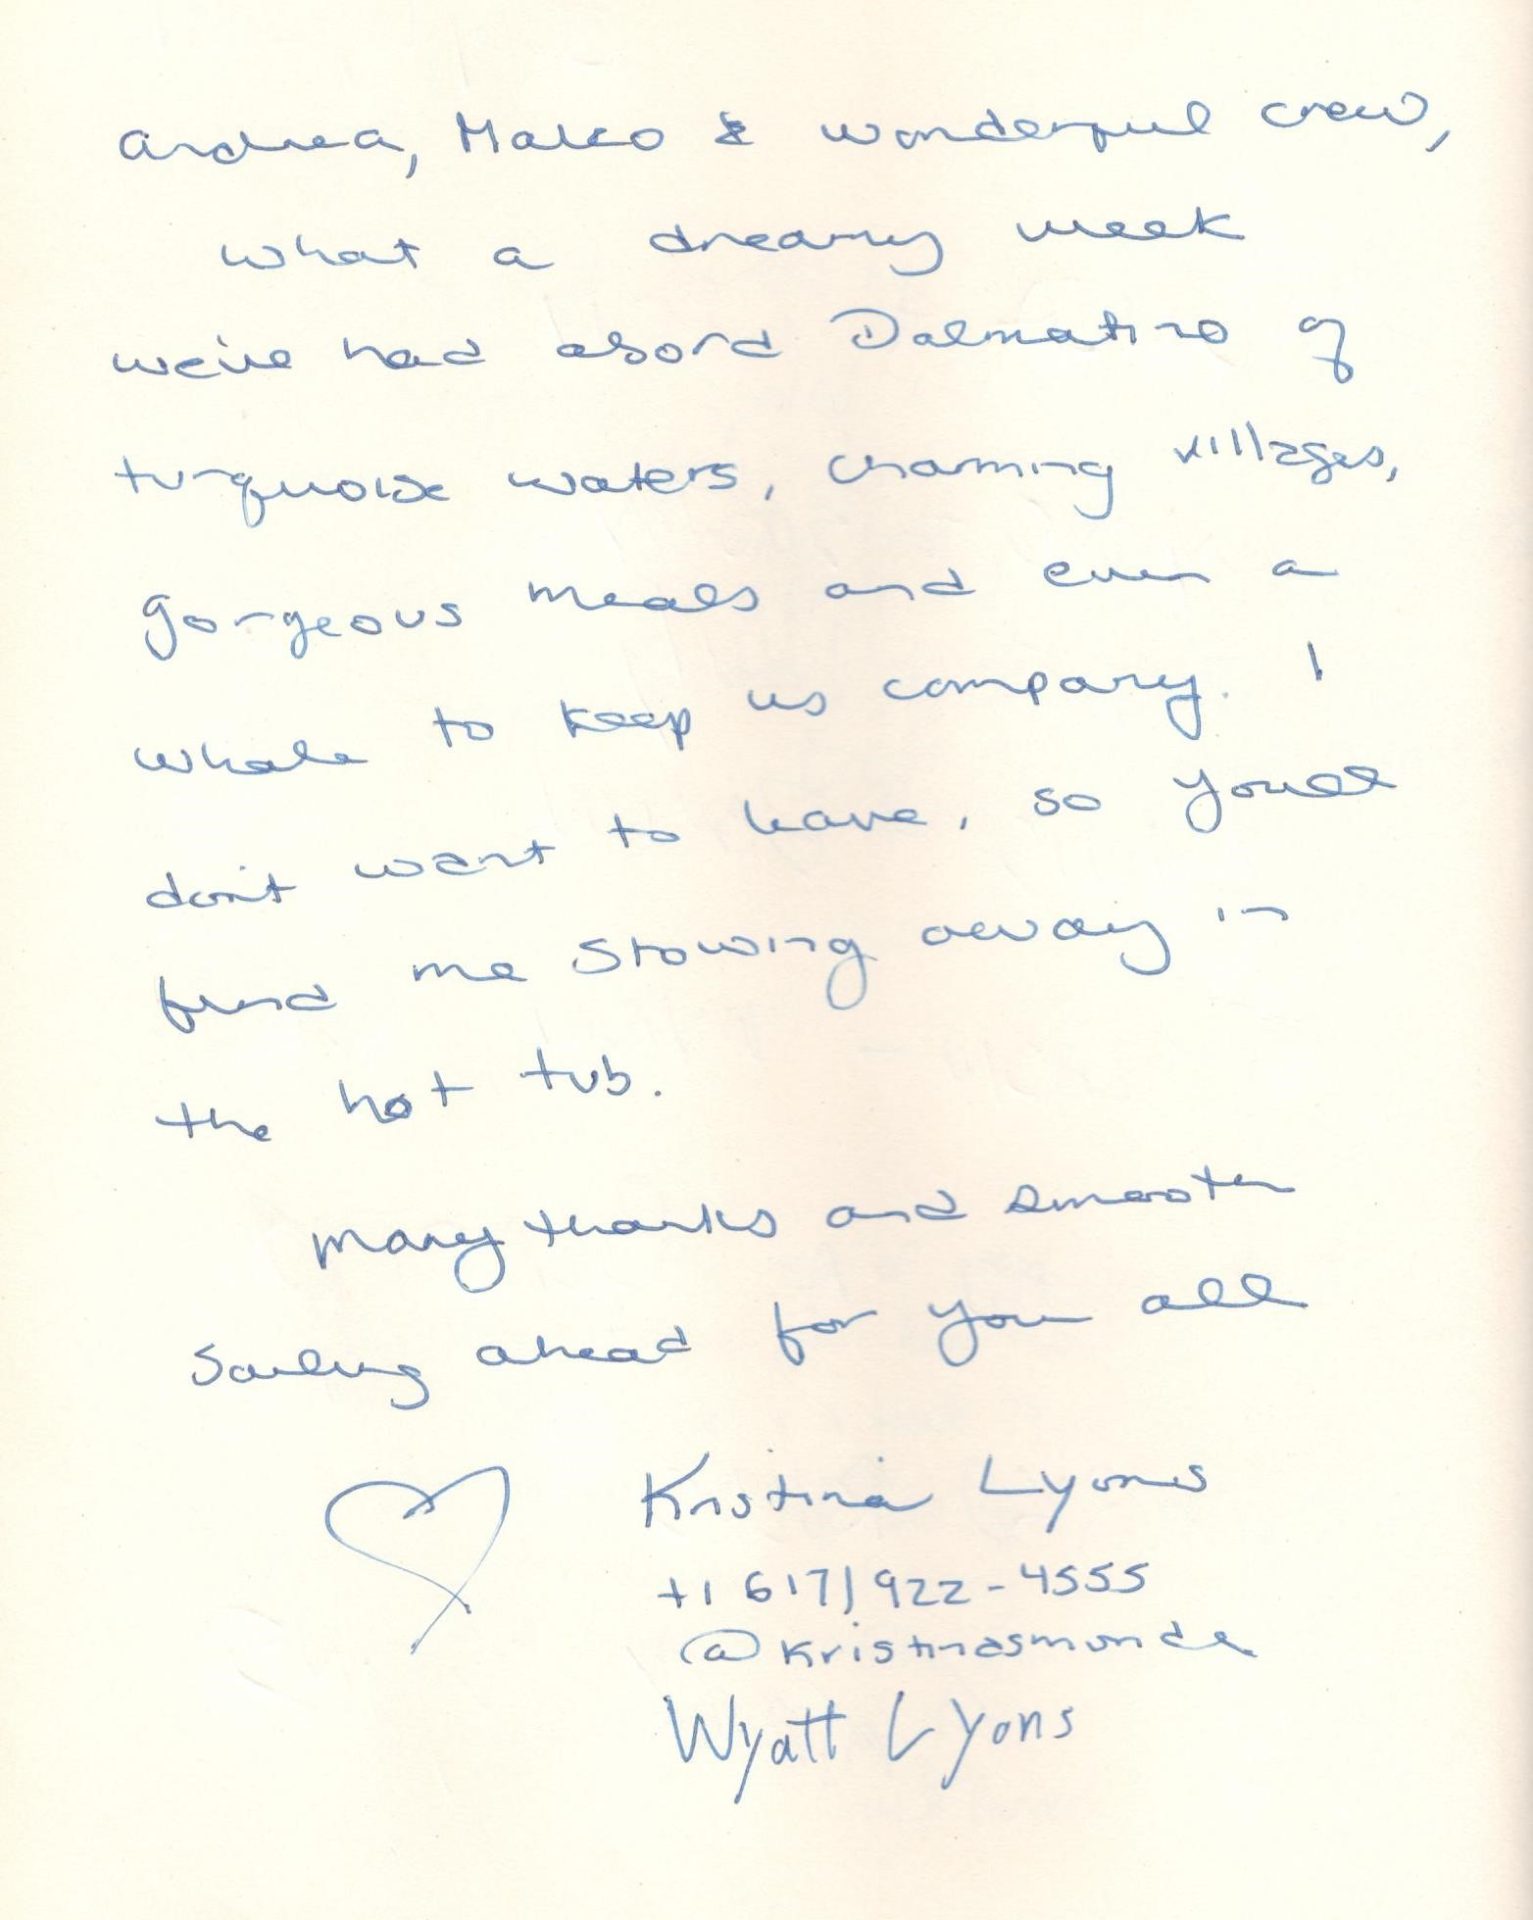 Andrea, Marko & wonderful crew,
What a dreamy week
we've had abord Dalmatino of
turquoise waters, charming villages,
gorgeous meals and even a
whale to keep us company. I
don't want to leave, so you'll
find me stowing away in
the hot tub.
Many thanks and smooth
sailing ahead for you all
Kristina Lyons
+1 617) 922-4555
@kristinasmonde
Wyatt Lyons